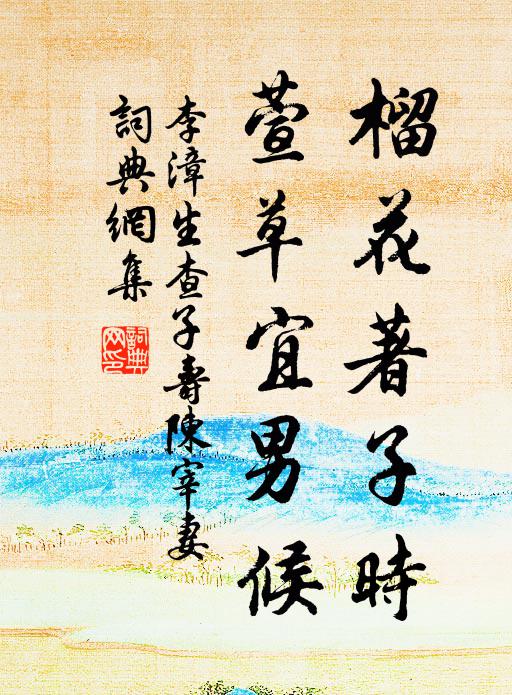 榴花著子時
萱草宜男候
李漳生查子壽陳宰妻
詞典網集
詞典網印